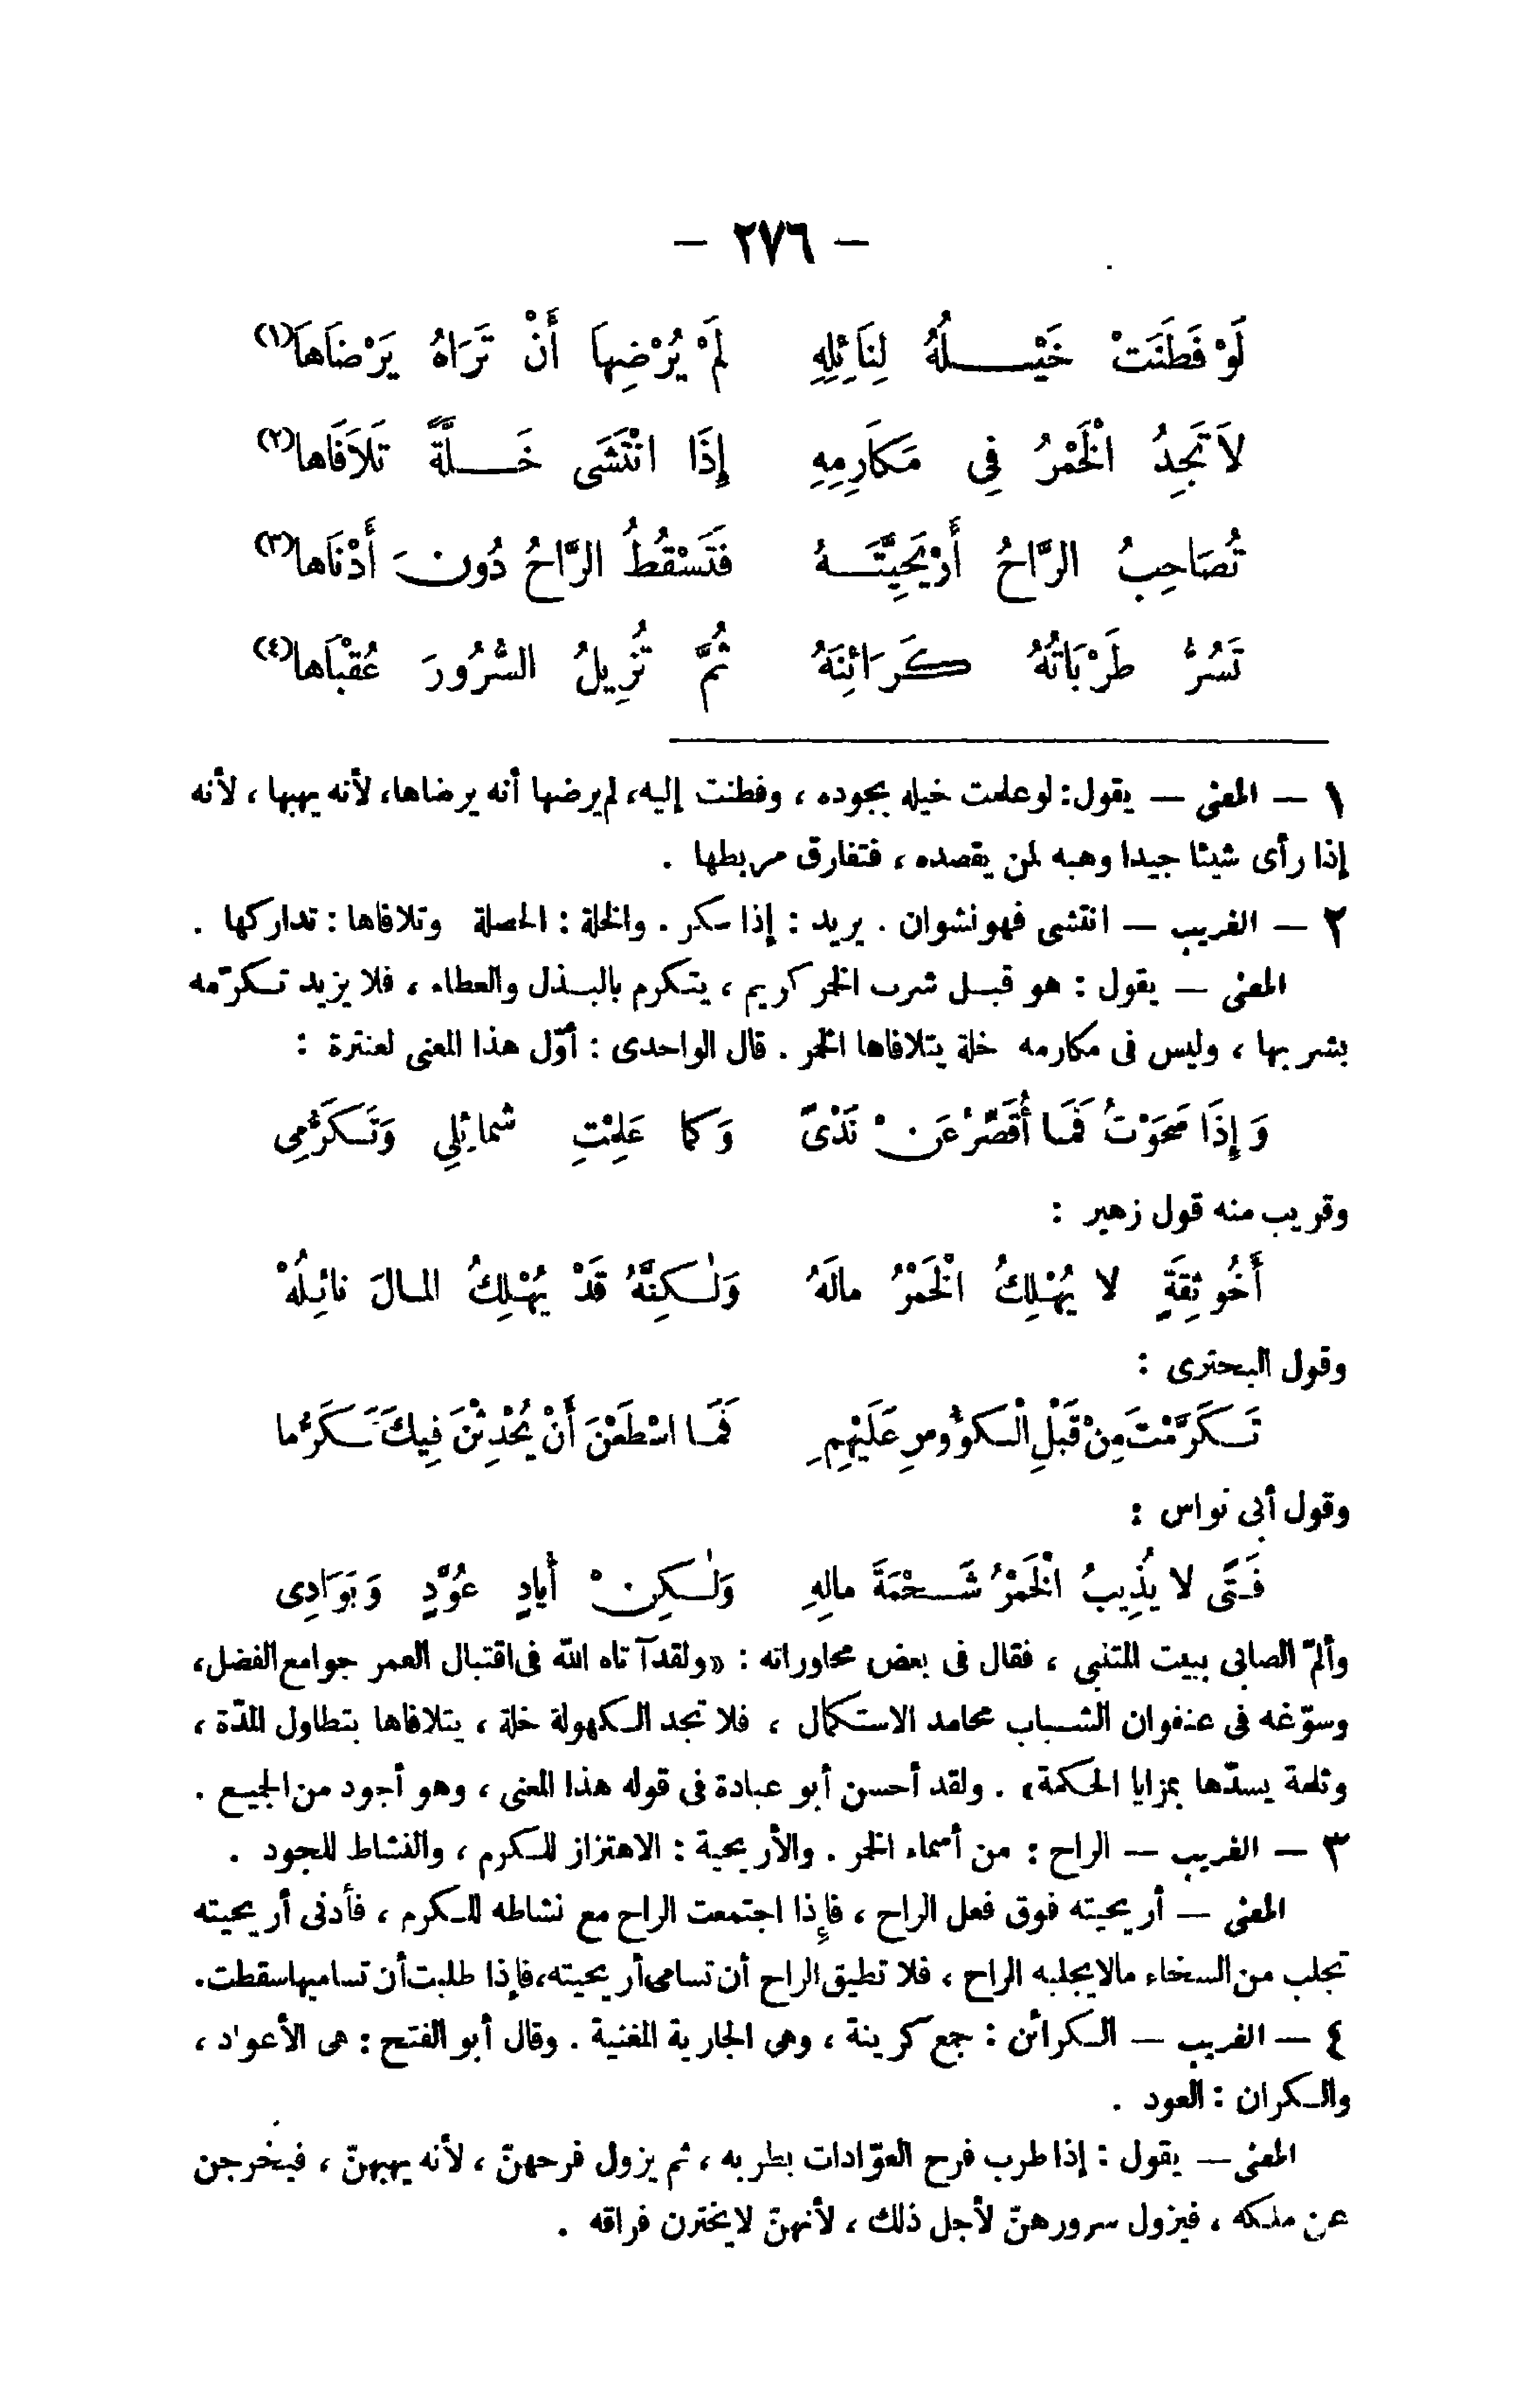 — ٢٧٦ —
لَوْ فَطَنَتْ خَيْـــلُهُ لِنَائِلِهِ لَمْ يُرْضِهَا أَنْ تَرَاهُ يَرْضَاهَا(١)
لاَ تَجِدُ الْخَمْرُ فِي مَكَارِمِهِ إِذَا انْتَشَى خَـــلَّةً تَلاَفَاها(٢)
تُصَاحِبُ الرَّاحُ أَرْيَحِيَّتَـــهُ فَتَسْقُطُ الرَّاحُ دُونَ أَدْنَاها(٣)
تَسُرُّ طَرْبَاتُهُ كَرَائِنَهُ ثُمَّ تُزِيلُ السُّرُورَ عُقْبَاَها(٤)
١ — المعنى — يقول: لو علمت خيله بجوده ، وفطنت إليه، لم يرضها أنه يرضاها، لأنه يهبها ، لأنه
إذا رأى شيئا جيدا وهبه لمن يقصده ، فتفارق مربطها .
٢ — الغريب — انتشى فهو نشوان . يريد : إذا سكر . والخلة : الخصلة وتلافاها : تداركها .
المعنى — يقول : هو قبـل شرب الخمر كريم ، يتكرم بالبـذل والعطاء ، فلا يزيد تـكرّمه
بشربها ، وليس فى مكارمه خلة يتلافاها الخمر . قال الواحدى : أوّل هذا المعنى لعنترة :
وَإِذَا صَحَوْتُ فَمَـا أُقَصِّرُ عَنْ نَدًى وَكما عَلِمْتِ شَمائِلِي وَتَـكَرُّمِى
وقريب منه قول زهير :
أَخُو ثِقَةٍ لا يُهْلِكُ الْخَمْرُ مالَهُ وَلٰـكِنَّهُ قَدْ يُهْلِكُ المـالَ نائِـلُهْ
وقول البحترى :
تَـكَرَّمْتَ مِنْ قَبْلِ الْـكُؤُوسِ عَلَيْهِمِ فَمَـا اسْطَعْنَ أَنْ يُحْدِثْنَ فِيكَ تَـكَرُّما
وقول أبى نواس :
فَـتًى لا يُذِيبُ الْخَمْرُ شَـحْمَةَ مالِهِ وَلٰـكِنْ أَيادٍ عُوَّدٍ وَبَوَادِى
وألمّ الصابى ببيت المتنبى ، فقال فى بعض محاوراته : «ولقد آتاه الله فى اقتبال العمر جوامع الفضل،
وسوّغه فى عنفوان الشـباب محامد الاستـكمال ، فلا تجد الـكهولة خلة ، يتلافاها بتطاول المدّة ،
وثلمة يسدّها بمزايا الحـكمة» . ولقد أحسن أبو عبادة فى قوله هذا المعنى ، وهو أجود من الجميع .
٣ — الغريب — الراح : من أسماء الخمر . والأريحية : الاهتزاز للـكرم ، والنشاط للجود .
المعنى — أريحيته فوق فعل الراح ، فإذا اجتمعت الراح مع نشاطه للـكرم ، فأدنى أريحيته
تجلب من السخاء مالا يجلبه الراح ، فلا تطيق الراح أن تسامى أريحيته، فإذا طلبت أن تساميها سقطت.
٤ — الغريب — الـكرائن : جمع كرينة ، وهى الجارية المغنية . وقال أبو الفتح : هى الأعواد ،
والـكران : العود .
المعنى — يقول : إذا طرب فرح العوّادات بطربه ، ثم يزول فرحهنّ ، لأنه يهبهنّ ، فيخرجن
عن ملـكه ، فيزول سرورهنّ لأجل ذلك ، لأنهنّ لا يخترن فراقه .